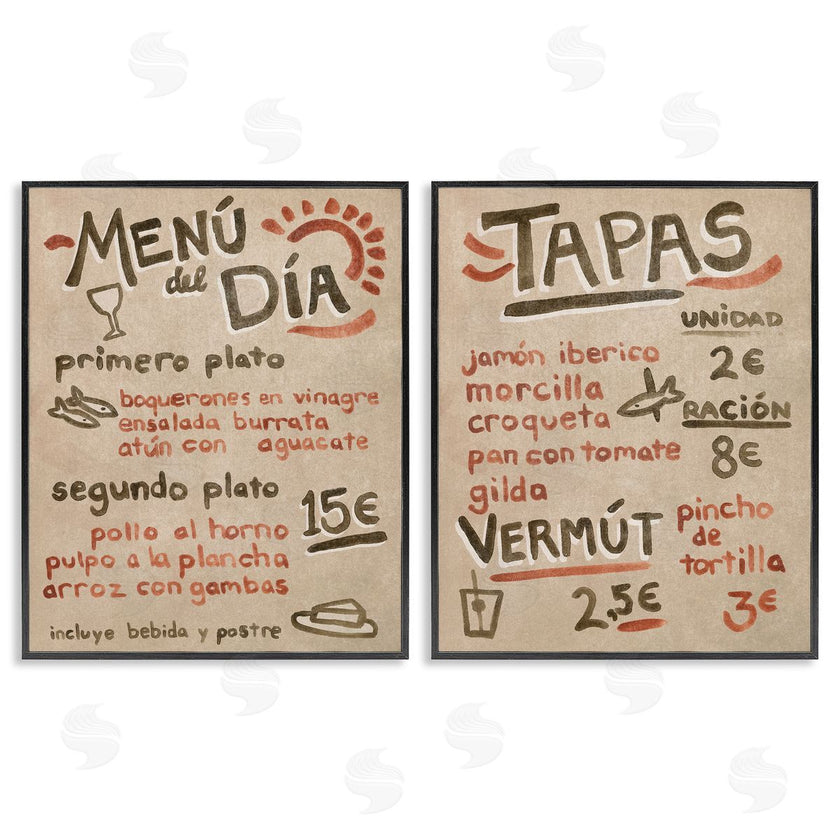 MENÚ
del DÍA
primero plato
boquerones en vinagre
ensalada burrata
atún con aguacate
segundo plato
pollo al horno
pulpo a la plancha
arroz con gambas
15€
incluye bebida y postre
TAPAS
UNIDAD
2€
RACIÓN
8€
jamón iberico
morcilla
croqueta
pan con tomate
gilda
VERMÚT
2,5€
pincho
de
tortilla
3€